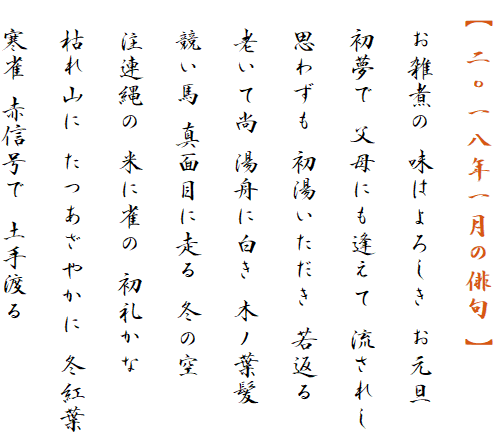 【 二〇一八年一月の俳句 】
お雑煮の 味はよろしき お元旦
初夢で 父母にも逢えて 流されし
思わずも 初湯いただき 若返る
老いて尚 湯舟に白き 木ノ葉髪
競い馬 真面目に走る 冬の空
注連縄の 米に雀の 初礼かな
枯れ山に たつあざやかに 冬紅葉
寒雀 赤信号で 土手渡る